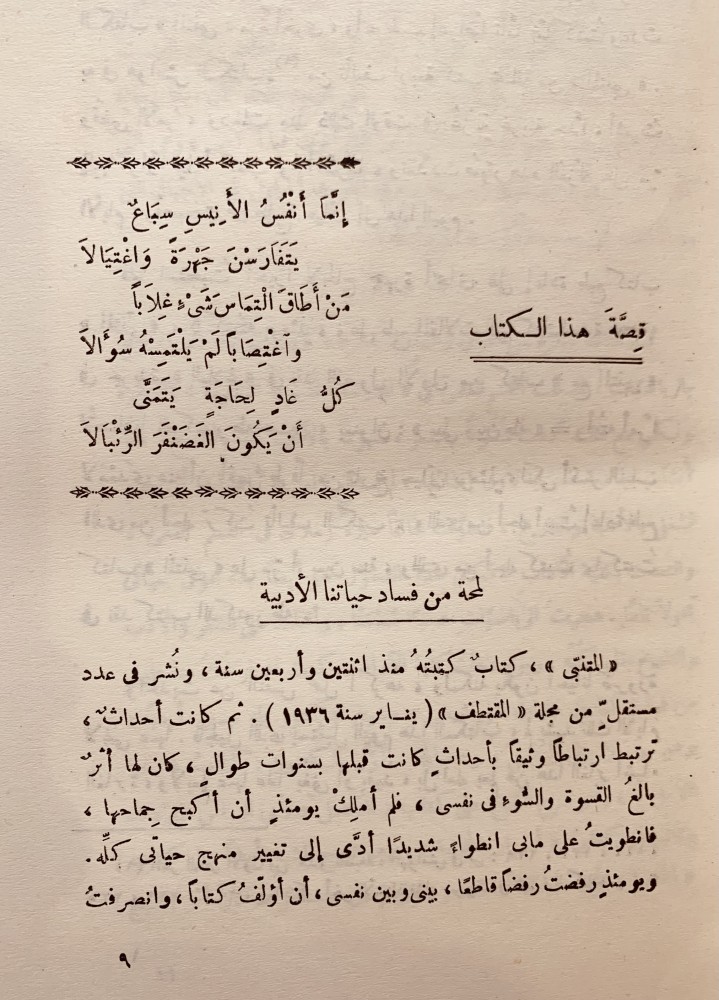 إِنَّمَا أَنْفُسُ الأَنِيسِ سِبَاعٌ
يَتَفَارَسْنَ جَهْرَةً وَاغْتِيَالاَ
مَنْ أَطَاقَ الْتِمَاسَ شَىْءٍ غِلاَباً
وَاغْتِصَاباً لَمْ يَلْتَمِسْهُ سُؤَالاَ
كُلُّ غَادٍ لِحَاجَةٍ يَتَمَنَّى
أَنْ يَكُونَ الغَضَنْفَرَ الرِّئْبَالاَ
قِصَّةَ هذا الـكتاب
لمحة من فساد حياتنا الأدبية
« المتنبّى » ، كتابٌ كتبتُهُ منذ اثنتين وأربعين سنة ، ونُشر فى عدد
مستقلٍّ من مجلة « المقتطف » ( ينـاير سنة ١٩٣٦ ) . ثم كانت أحداثٌ ،
ترتبط ارتباطًا وثيقًا بأحداثٍ كانت قبلها بسنوات طوالٍ ، كان لها أثرٌ
بالغُ القسوة والسُّوءِ فى نفسى ، فلم أملِكْ يومئذٍ أن أكبح جِماحها ،
فانطويتُ على مابى انطواءً شديدًا أدَّى إلى تغيير منهج حياتى كلِّه .
ويومئذٍ رفضتُ رفضًا قاطعًا ، بينى وبين نفسى ، أن أؤلّفُ كتاباً ، وانصرفتُ
٩